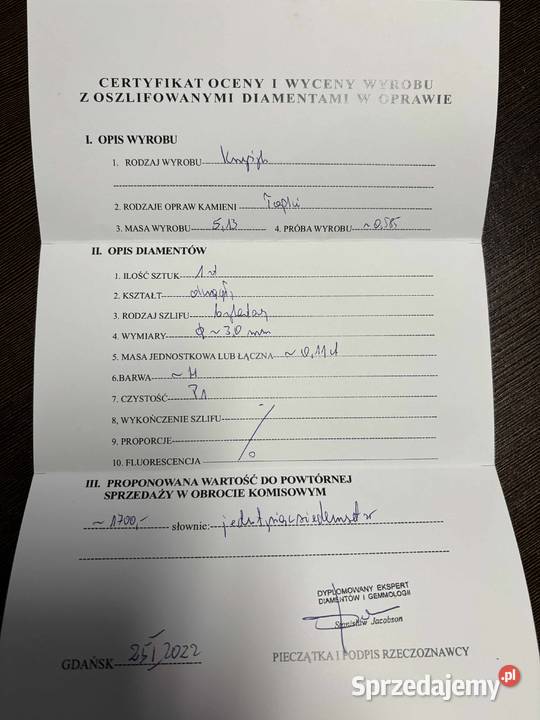 CERTYFIKAT OCENY I WYCENY WYROBU
Z OSZLIFOWANYMI DIAMENTAMI W OPRAWIE
I. OPIS WYROBU
1. RODZAJ WYROBU
2. RODZAJE OPRAW KAMIENI Łapki
3. MASA WYROBU 5,13 4. PRÓBA WYROBU ~0,585
II. OPIS DIAMENTÓW
1. ILOŚĆ SZTUK 1
2. KSZTAŁT okrągły
3. RODZAJ SZLIFU brylantowy
4. WYMIARY ϕ ~ 3,0 mm
5. MASA JEDNOSTKOWA LUB ŁĄCZNA ~ 0,11 ct
6.BARWA ~ H
7. CZYSTOŚĆ P1
8, WYKOŃCZENIE SZLIFU
9. PROPORCJE
10. FLUORESCENCJA
III. PROPONOWANA WARTOŚĆ DO POWTÓRNEJ
SPRZEDAŻY W OBROCIE KOMISOWYM
~ 1700,- słownie: jeden tysiąc siedemset zł
DYPLOMOWANY EKSPERT
DIAMENTÓW I GEMMOLOGII
Stanisław Jacobson
GDAŃSK 25/I/2022 PIECZĄTKA I PODPIS RZECZOZNAWCY
Sprzedajemy.pl